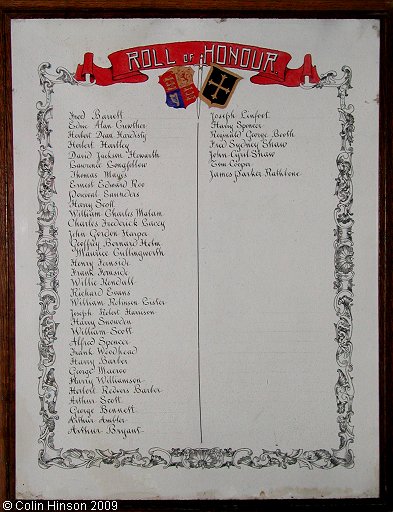 ROLL OF HONOUR
Fred Barrett
Edric Alan Crowther
Herbert Dean Hardisty
Herbert Hartley
David Jackson Howarth
Lawrence Longfellow
Thomas Mayes
Ernest Edward Roo
Perceval Saunders
Harry Scott
William Charles Malam
Charles Frederick Cacey
John Gordon Harper
Geoffrey Bernard Helm
Maurice Cullingworth
Henry Fernside
Frank Fernside
Willie Kendall
Richard Evans
William Robinson Lister
Joseph Robert Harrison
Harry Snowden
William Scott
Alfred Spencer
Frank Woodhead
Harry Barber
George
Harry Williamson
Herbert Redvers Barber
Arthur Scott
George Bennett
Arthur Ambler
Arthur Bryant
Joseph Linfoot
Harry Spencer
Reginald George Booth
Fred Sydney Shaw
John Cyril Shaw
Cooper
James Parker Rathbone
© Colin Hinson 2009